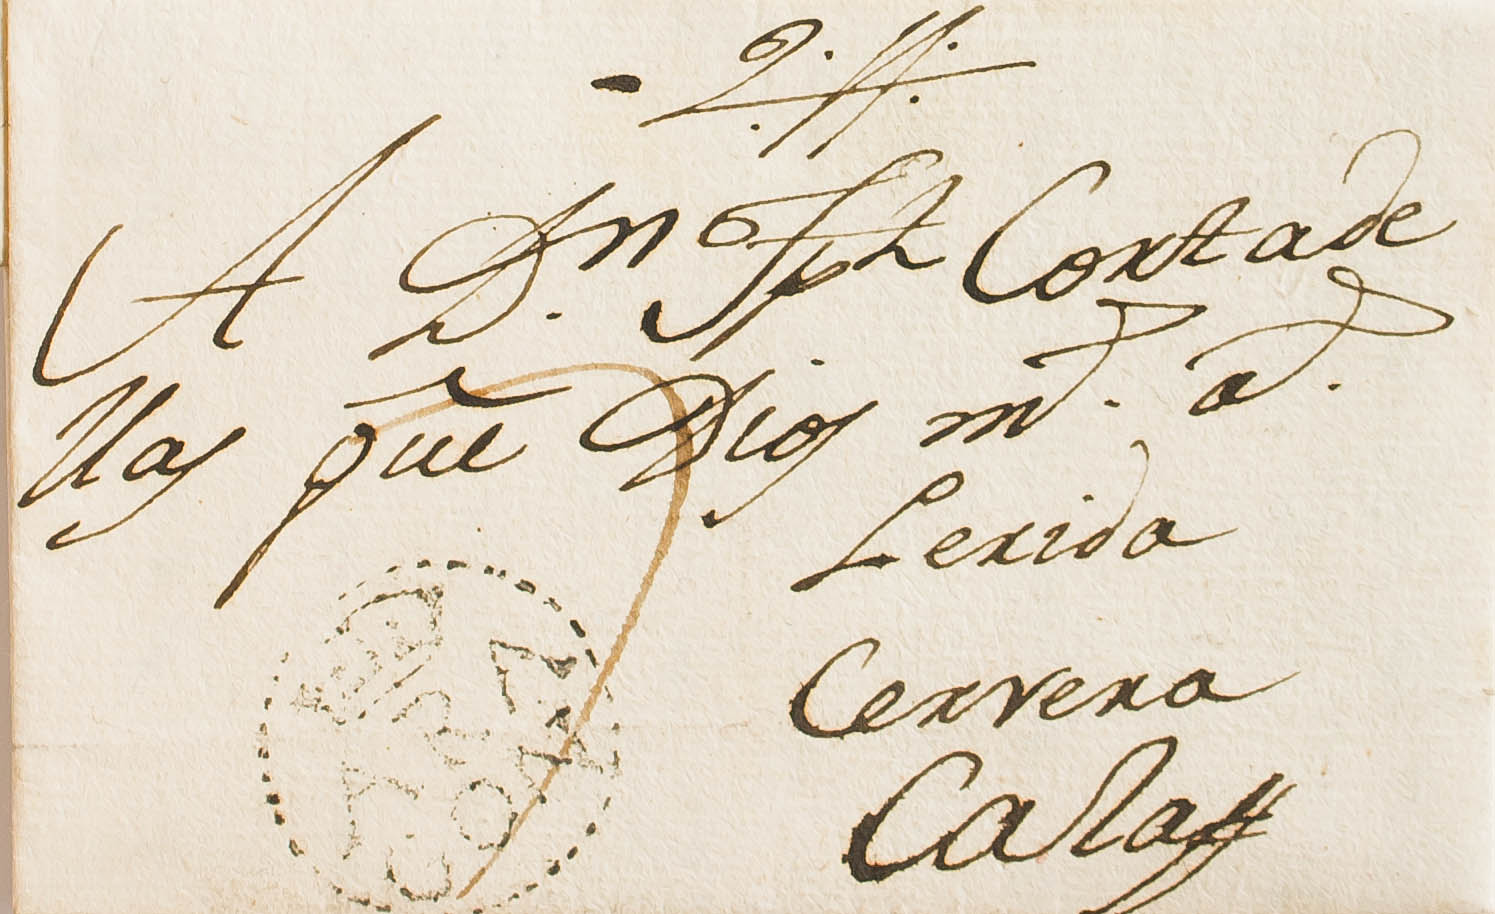 A Dn. Jph Cortade
llas que Dios m. a.
Lerida
Cervera
Calaff